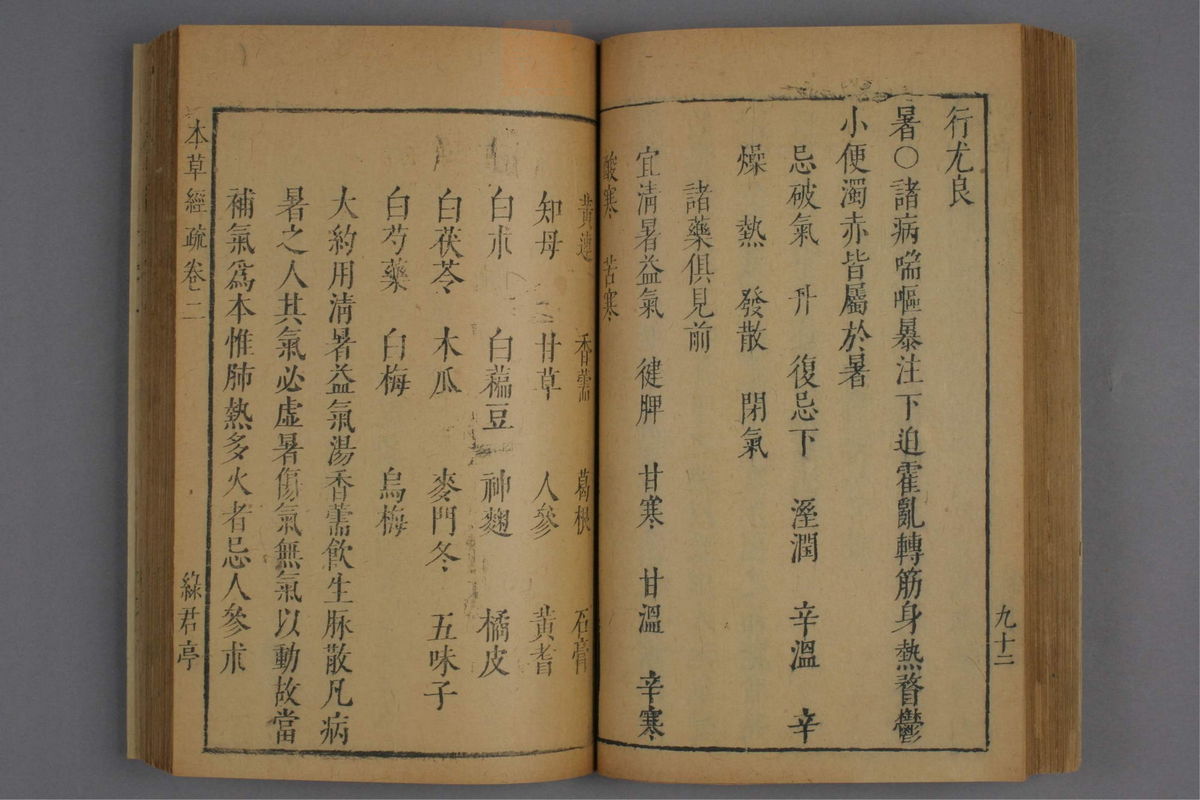 行尤良
暑○諸病喘嘔暴注下迫霍亂轉筋身熱瞀鬱
小便濁赤皆屬於暑
忌破氣 升 復忌下 溼潤 辛溫 辛
燥 熱 發散 閉氣
諸藥俱見前
宜淸暑益氣 健脾 甘寒 甘溫 辛寒
酸寒 苦寒
九十二
黃連 香薷 葛根 石膏
知母 甘草 人參 黃耆
白朮 白藊豆 神麴 橘皮
白茯苓 木瓜 麥門冬 五味子
白芍藥 白梅 烏梅
大約用淸暑益氣湯香薷飮生脉散凡病
暑之人其氣必虛暑傷氣無氣以動故當
補氣爲本惟肺熱多火者忌人參朮
本草經疏卷二
綠君亭